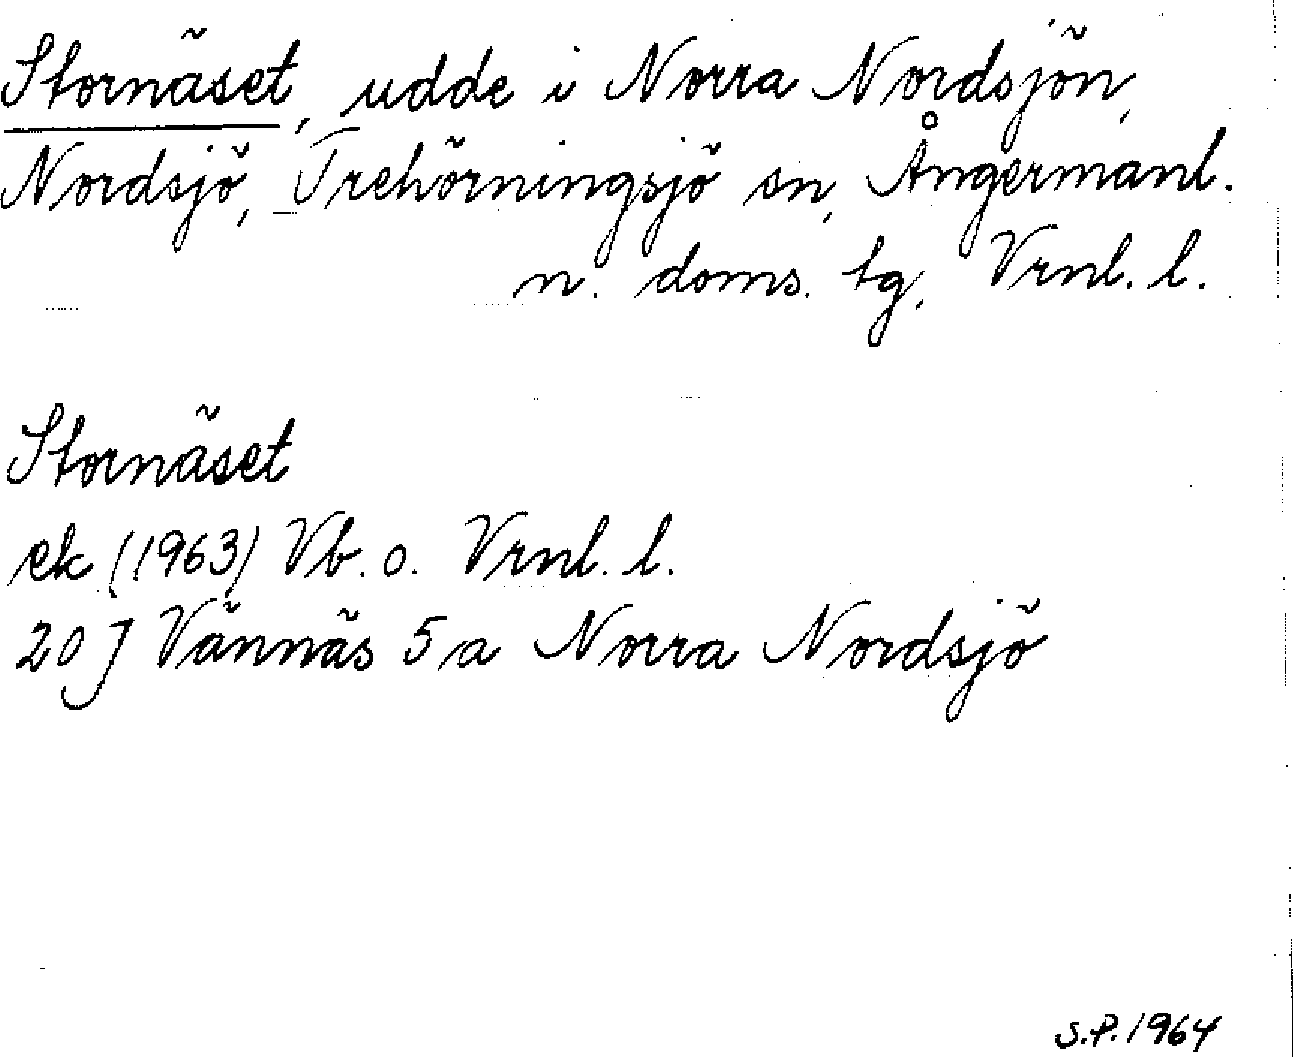 Stornäset, udde i Norra Nordsjön,
Nordsjö, Trehörningsjö sn, Ångermanl.
n. doms. tg, Vrnl. l.
Stornäset
ek (1963) Vb. o. Vrnl. l.
20 J Vännäs 5 a Norra Nordsjö
S.P. 1964